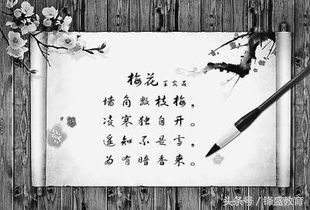 梅花 王安石
墙角数枝梅，
凌寒独自开。
遥知不是雪，
为有暗香来。
头条号/锋盛教育